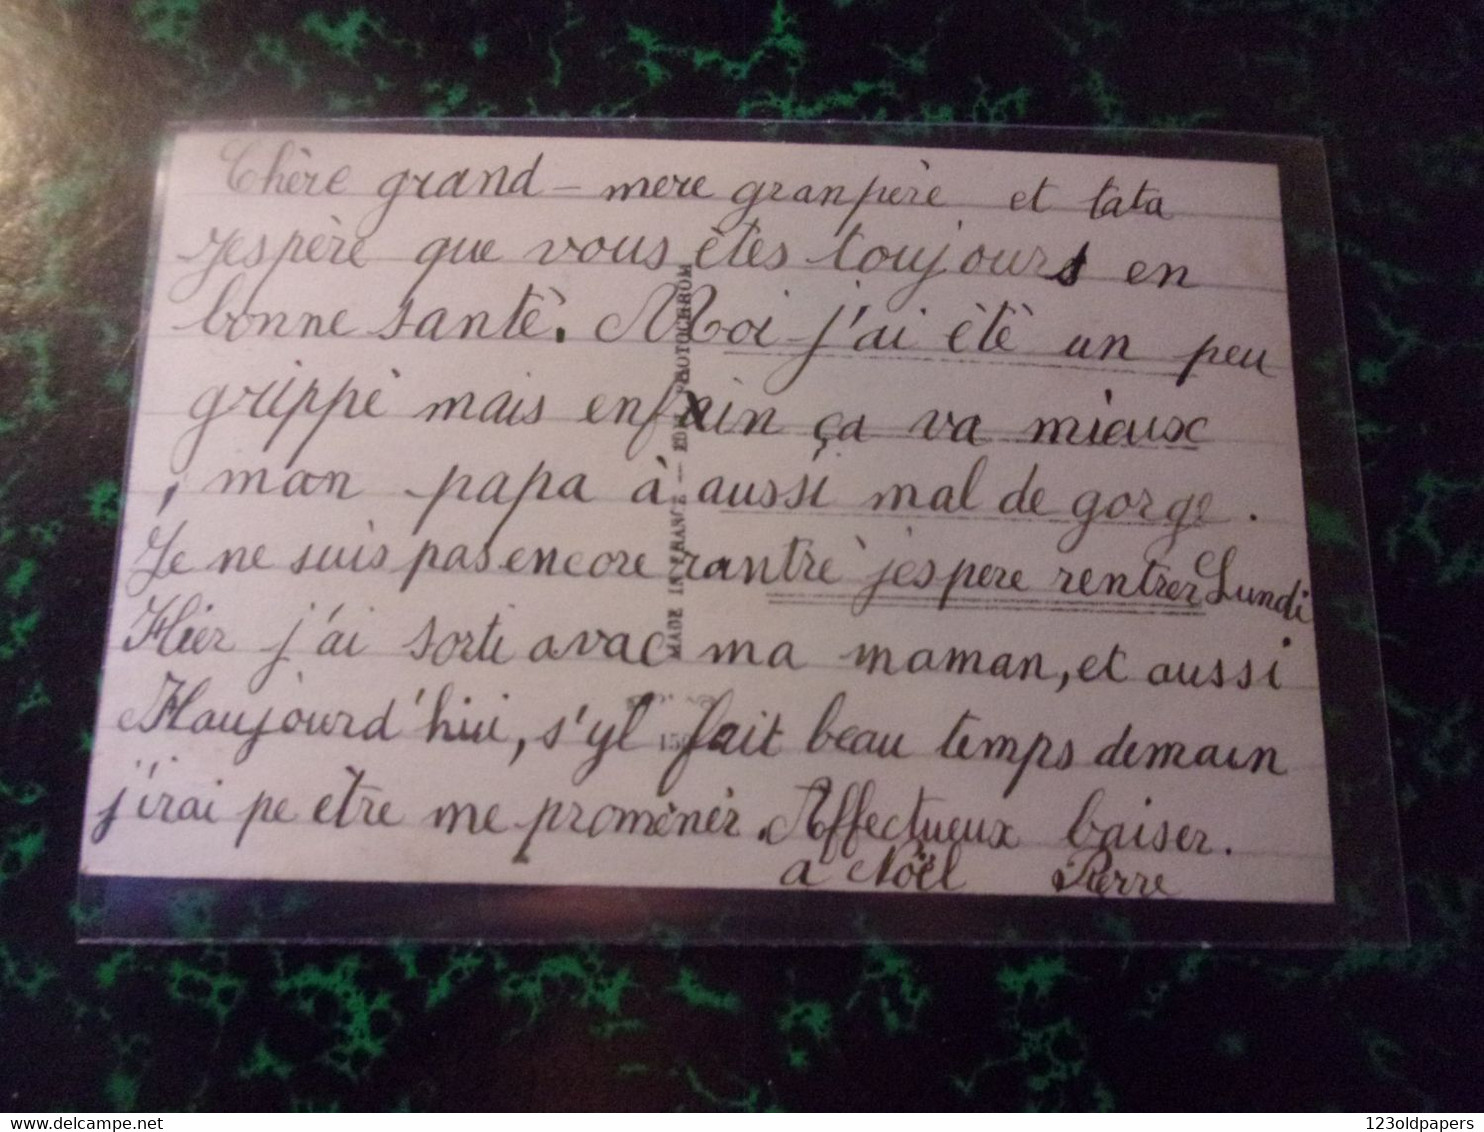 Chère grand-mere granpère et tata
Jespère que vous êtes toujours en
bonne santè. Moi j'ai étè un peu
grippé mais enfin ça va mieux
, mon papa á aussi mal de gorge.
Je ne suis pas encore rantré jespere rentrer Lundi
Hier j'ai sorti avac ma maman, et aussi
Haujourd'hui, s'yl fait beau temps demain
j'irai pe être me promèner. Affectueux baiser.
a Noël Pierre
MADE IN FRANCE — EDIT. PHOTOCHROM
123oldpapers